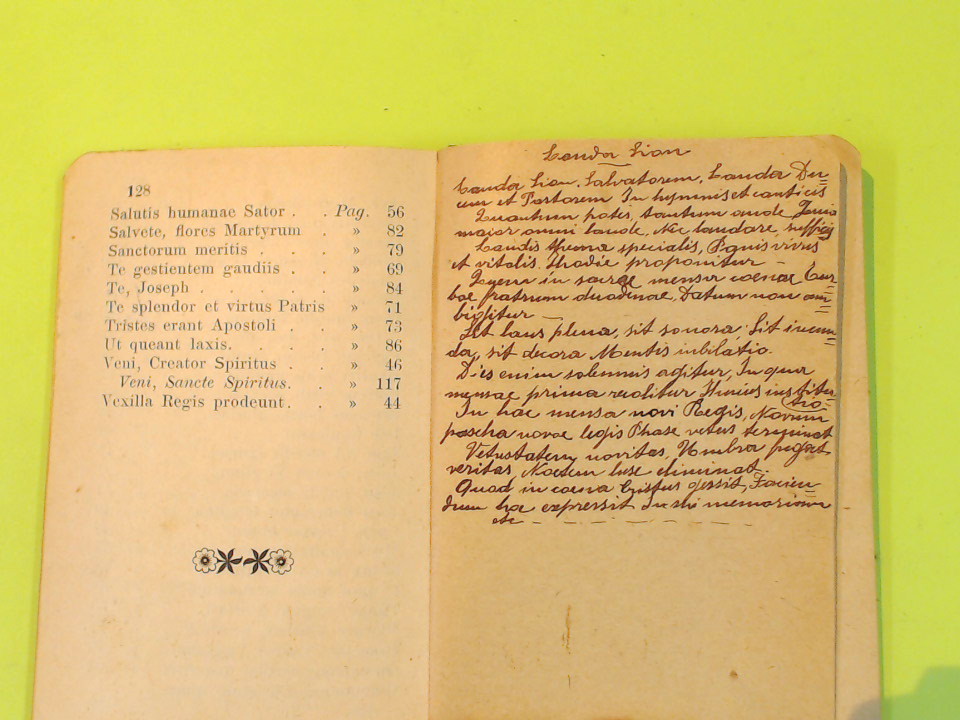 128
Salutis humanae Sator . . Pag. 56
Salvete, flores Martyrum » 82
Sanctorum meritis . . . » 79
Te gestientem gaudiis . . » 69
Te, Joseph . . . . . . » 84
Te splendor et virtus Patris » 71
Tristes erant Apostoli . . » 73
Ut queant laxis. . . . . » 86
Veni, Creator Spiritus . . » 46
Veni, Sancte Spiritus. . » 117
Vexilla Regis prodeunt. . » 44
Lauda Sion
Lauda Sion, Salvatorem, Lauda Du=
cem et Pastorem In hymnis et canticis
Quantum potes, tantum aude Quia
maior omni laude, Nec laudare sufficis
Laudis thema specialis, Panis vivus
et vitalis Hodie proponitur –
Quem in sacrae mensa coenae Tur=
bae fratrum duodenae, Datum non am=
bigitur –
Sit laus plena, sit sonora Sit iucun=
da, sit decora Mentis iubilatio.
Dies enim solemnis agitur, In qua
mensae prima recolitur Huius institu
tio=
In hac mensa novi Regis, Novum
pascha novae legis Phase vetus terminat
Vetustatem novitas, Umbra fugat
veritas Noctem luse eliminat.
Quod in coena Cristus gessit, Facien=
dum hac expressit In sui memoriam
etc – – – – – –